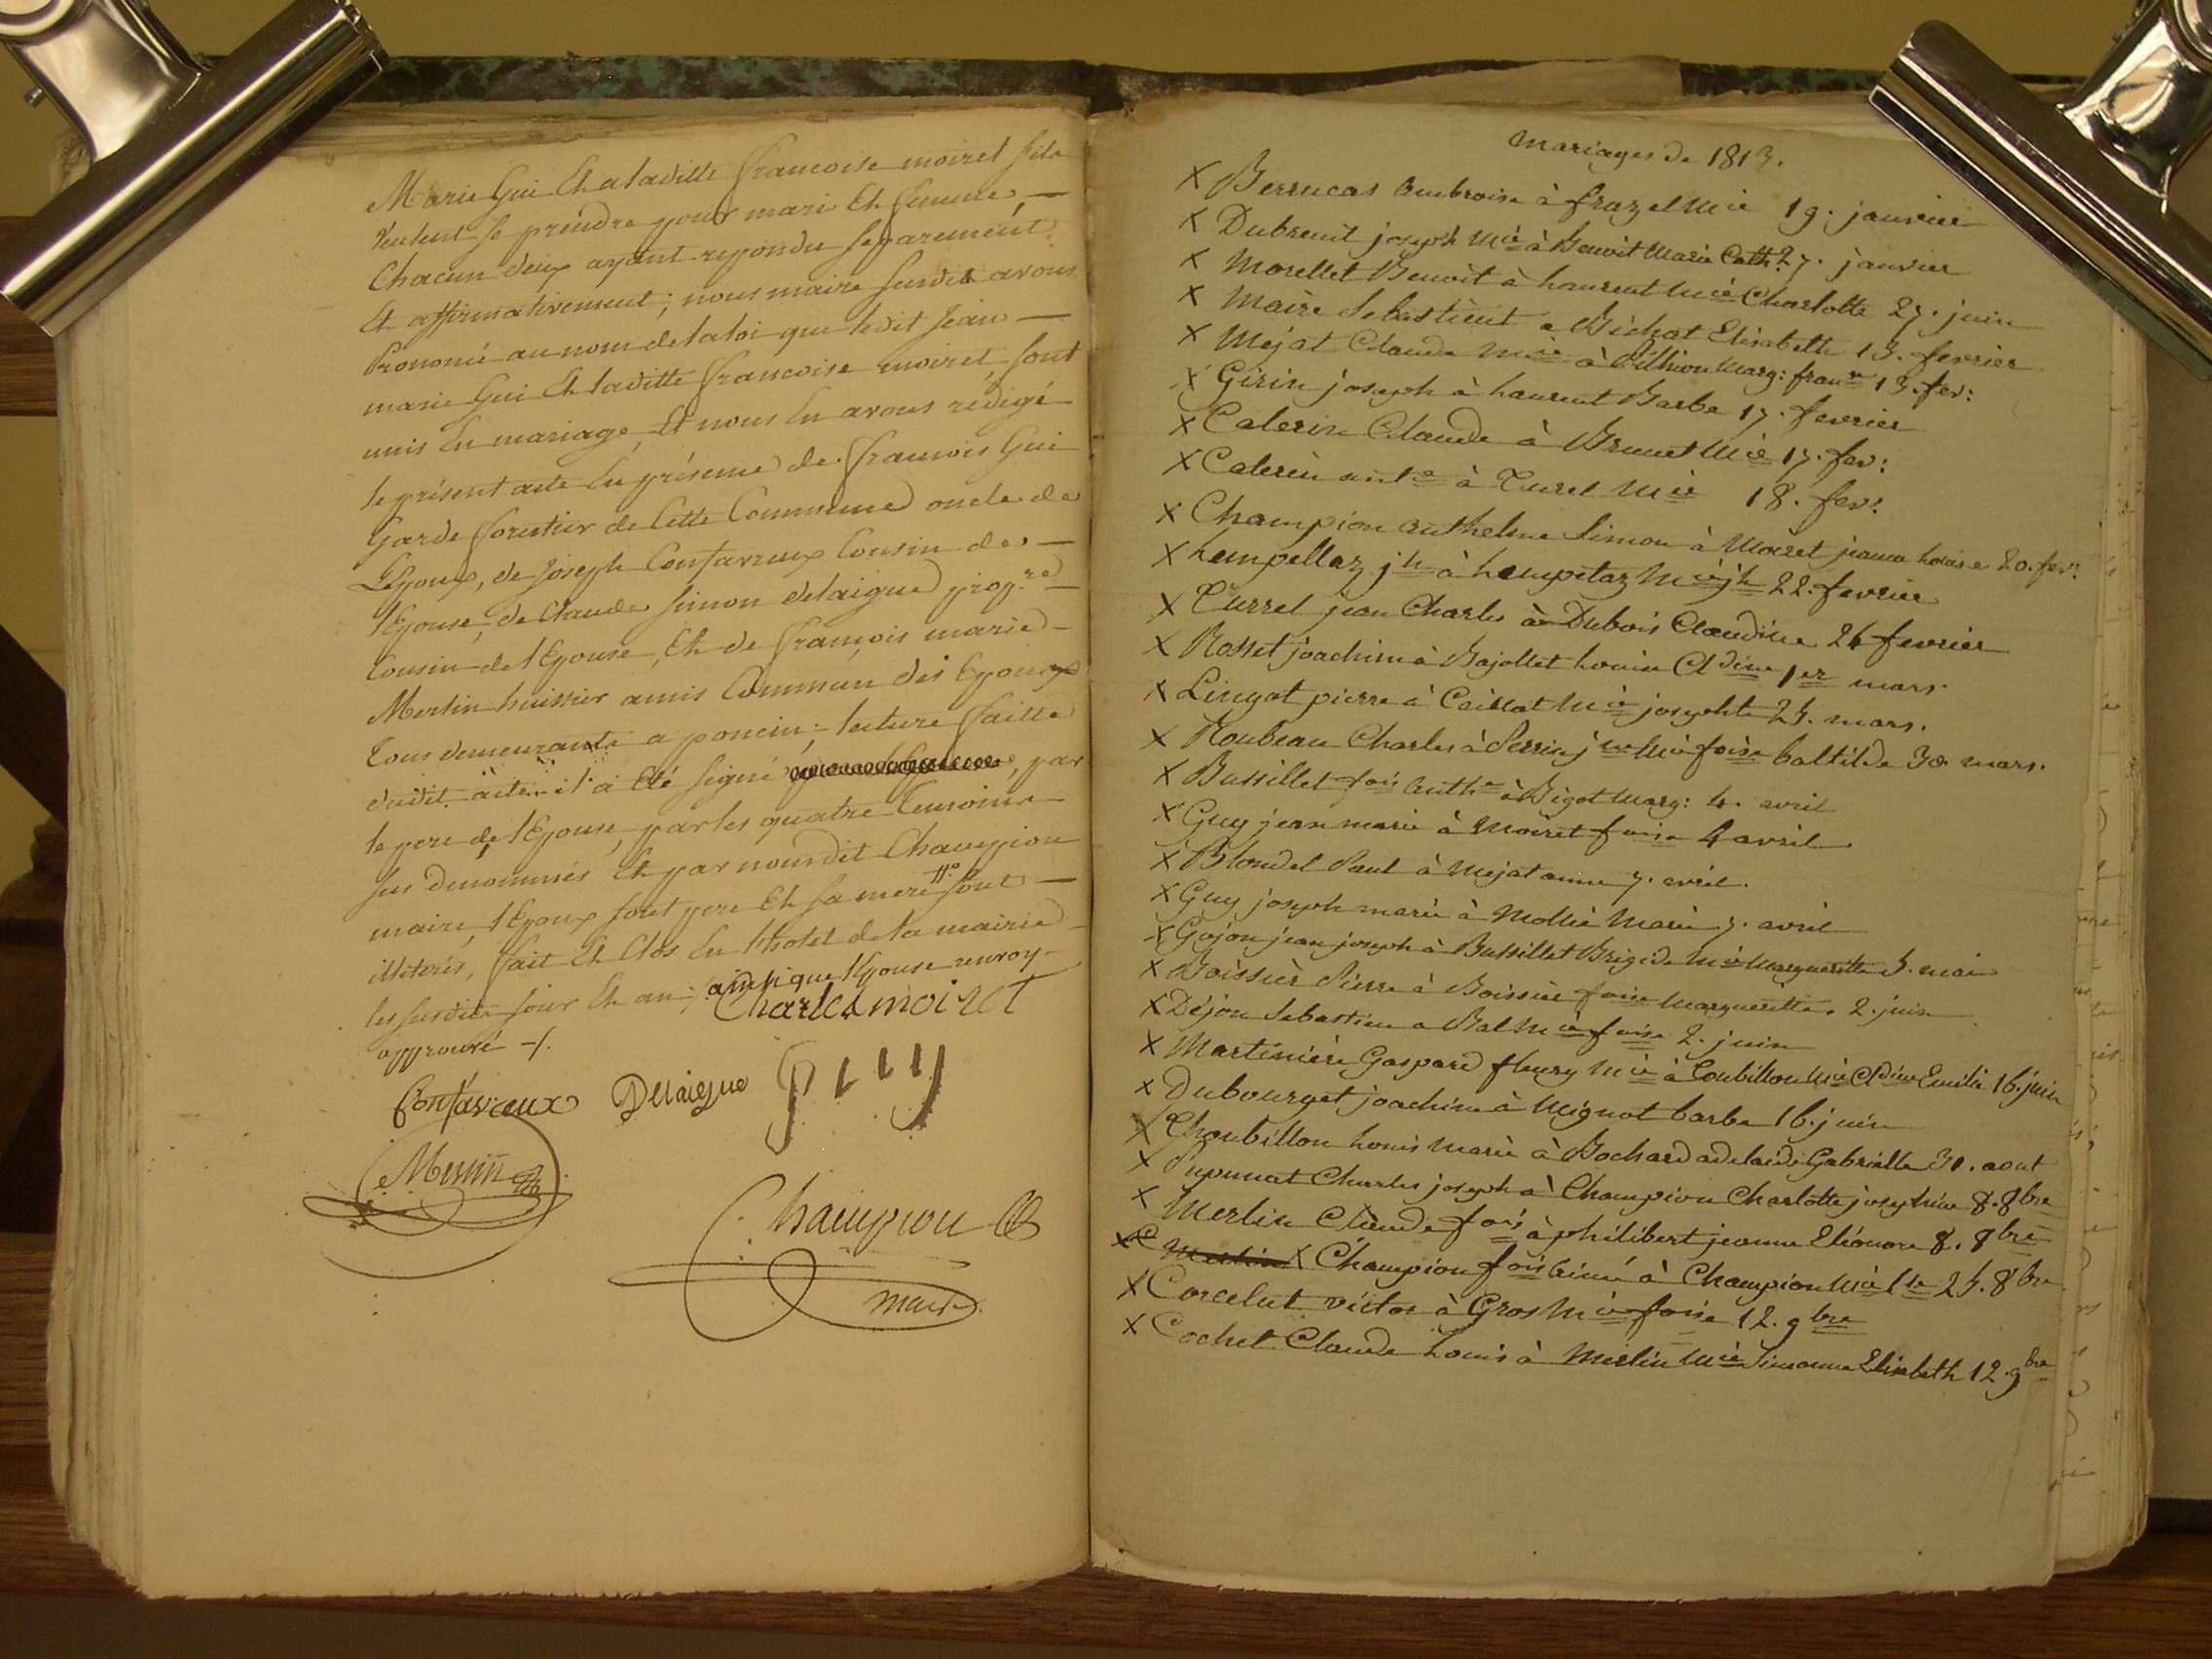 Marie Gui Et a laditte francoise moiret s'ils
veulent se prendre pour mari Et femme, —
Chacun deux ayant repondu separement
Et affirmativement; nous maire susdit avons
Prononcé au nom de la loi que ledit Jean —
marie Gui Et laditte francoise moiret, sont
unis En mariage, Et nous En avons rédigé
le présent acte En présence de francois Gui
Garde forestier de Cette Commune oncle de
L'Epoux, de Joseph Confavreux Cousin de —
l'Epouse, de Claude Simon delaigue prop.re
Cousin de l'Epouse, Et de francois marie
Merlin huissier amis Commun des Epoux
Tous demeurants a poncin; lecture faitte
dudit acte il a Eté signé par
le pere de l'Epouse, par les quatre Temoins
sus denommés Et par nousdit Champion
maire, l'Epoux sont pere Et sa mere sont —
illiterés, fait Et Clos En l'hotel de la mairie
les susdits jour Et an; ainsi que l'Epouse renvoy
approuvé -/.
Charles moiret
Confavreux Delaigue guy
Merlin
Champion
maire
mariages de 1813.
X Berrucas Ambroise à frazel Mie 19. janvier
X Dubreuil joseph Mie à Benoit Marie Cath. 27. janvier
X Morellet Benoit à Laurent Mie Charlotte 27. juin
X Maire Sebastient a Bichat Elisabeth 13. fevrier
X Mejat Claude Mie à Billion Marg: fran 13. fev:
X Girin joseph à Laurent Barbe 17. fevrier
X Caterin Claude à Brunet Mie 17. fev:
X Caterin ant à Turel Mie 18. fev:
X Champion Anthelme Simon à Moiret jeanne Louise 20. fevr.
X Lempellaz jh à Lempelaz Mie jh 22. fevrier
X Turrel jean Charles à Dubois Claudine 26 fevrier
X Rosset joachim à Bajollet Louise Cldine 1er mars
X Lingot pierre à Caillat Mie josephte 25. mars.
X Roubeau Charles à Perrin jne Mie foise baltilde 30 mars.
X Bussillet fois Anth à Bigot Marg: 4. avril
X Guy jean marie à Moiret foise 4 avril
X Blondel Paul à Mejat anne 7. avril.
X Guy joseph marie à Mollie Marie 7. avril
X Gojon jean joseph à Bussillet Brigide Mie Marguerite 5. mai
X Boissier Pierre à Boissier foise Marguerite. 2. juin
X Dejon Sebastien a Bal Mie foise 2. juin
X Martiniere Gaspard fleury Mie à Coubillon Mie Cldine Emilie 16. juin
X Dubourget joachim à Mignot barbe 16. juin
X Choubillon Louis Marie à Bochard adelaide Gabrielle 30. aout
X Pupunat Charles joseph à Champion Charlotte josephine 8. 8bre
X Merlin Claude fois à philibert jeanne Eléonore 8. 8bre
X Champion fois Aimé à Champion Mie 25. 8bre
X Corcelut victor à Gros Mie foise 12. 9bre
X Cochet Claude Louis à Merlin Mie Simonne Elisabeth 12. 9bre